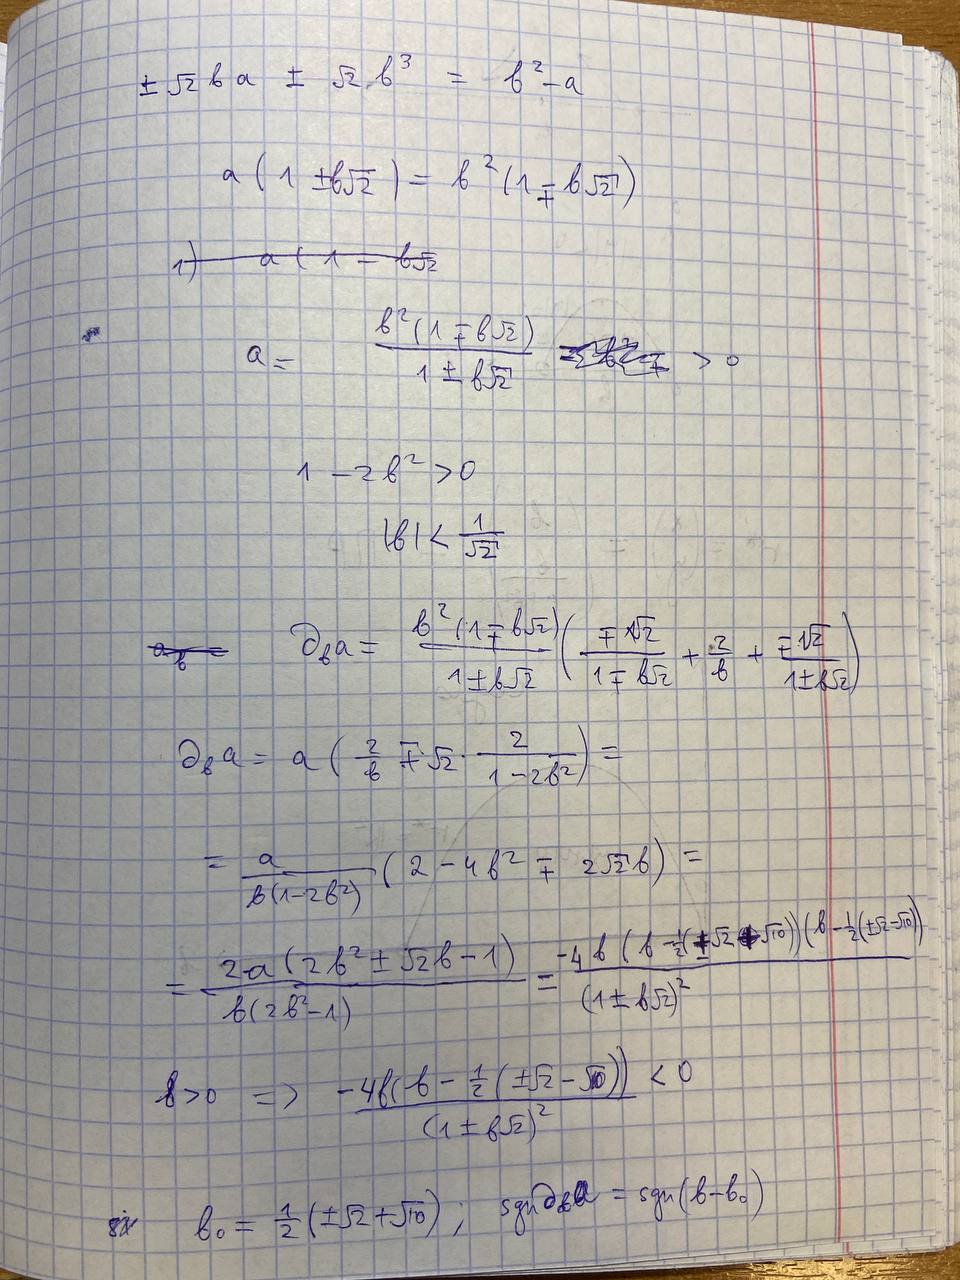 ± √2 b a ± √2 b³ = b² - a
a ( 1 ± b√2 ) = b² ( 1 ∓ b√2 )
1) a ( 1 = b√2
a = b² ( 1 ∓ b√2 ) / 1 ± b√2 > 0
1 - 2b² > 0
|b| < 1/√2
∂_b a = b² ( 1 ∓ b√2 ) / 1 ± b√2 ( ∓√2 / 1 ∓ b√2 + 2/b + ∓√2 / 1 ± b√2 )
∂_b a = a ( 2/b ∓ √2 · 2 / 1 - 2b² ) =
= a / b(1-2b²) ( 2 - 4b² ∓ 2√2 b ) =
= 2a ( 2b² ± √2 b - 1 ) / b(2b² - 1) = -4b ( b - 1/2 ( ±√2 + √10 )) ( b - 1/2 ( ±√2 - √10 )) / (1 ± b√2)²
b > 0 => -4b ( b - 1/2 ( ±√2 - √10 )) / (1 ± b√2)² < 0
b₀ = 1/2 ( ±√2 + √10 ) ; sgn ∂_b a = sgn ( b - b₀ )